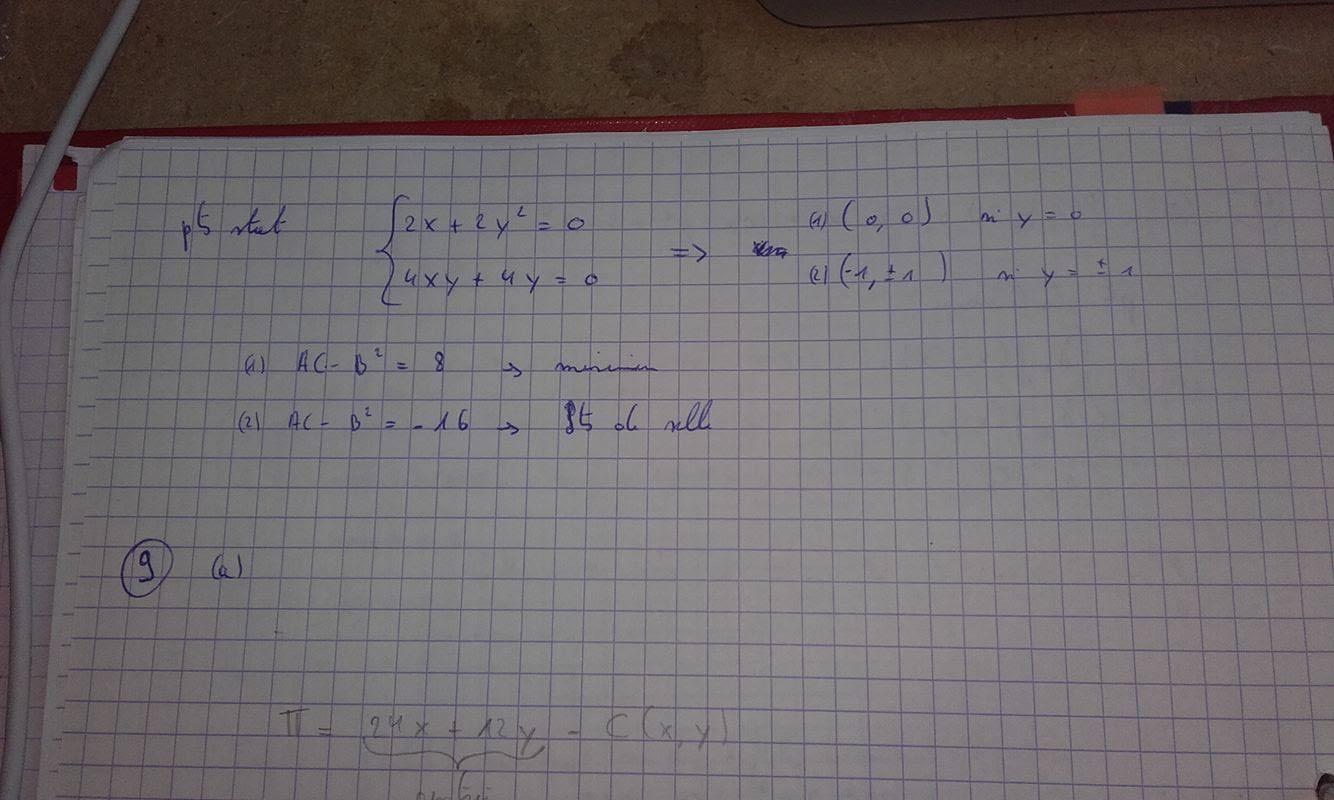 pt stat { 2x + 2y² = 0
4xy + 4y = 0 =>
(1) (0, 0) si y = 0
(2) (-1, ±1) si y = ±1
(1) AC - B² = 8 → minimum
(2) AC - B² = -16 → pt de selle
9 (a)
Π = 24x + 12y - C(x,y)